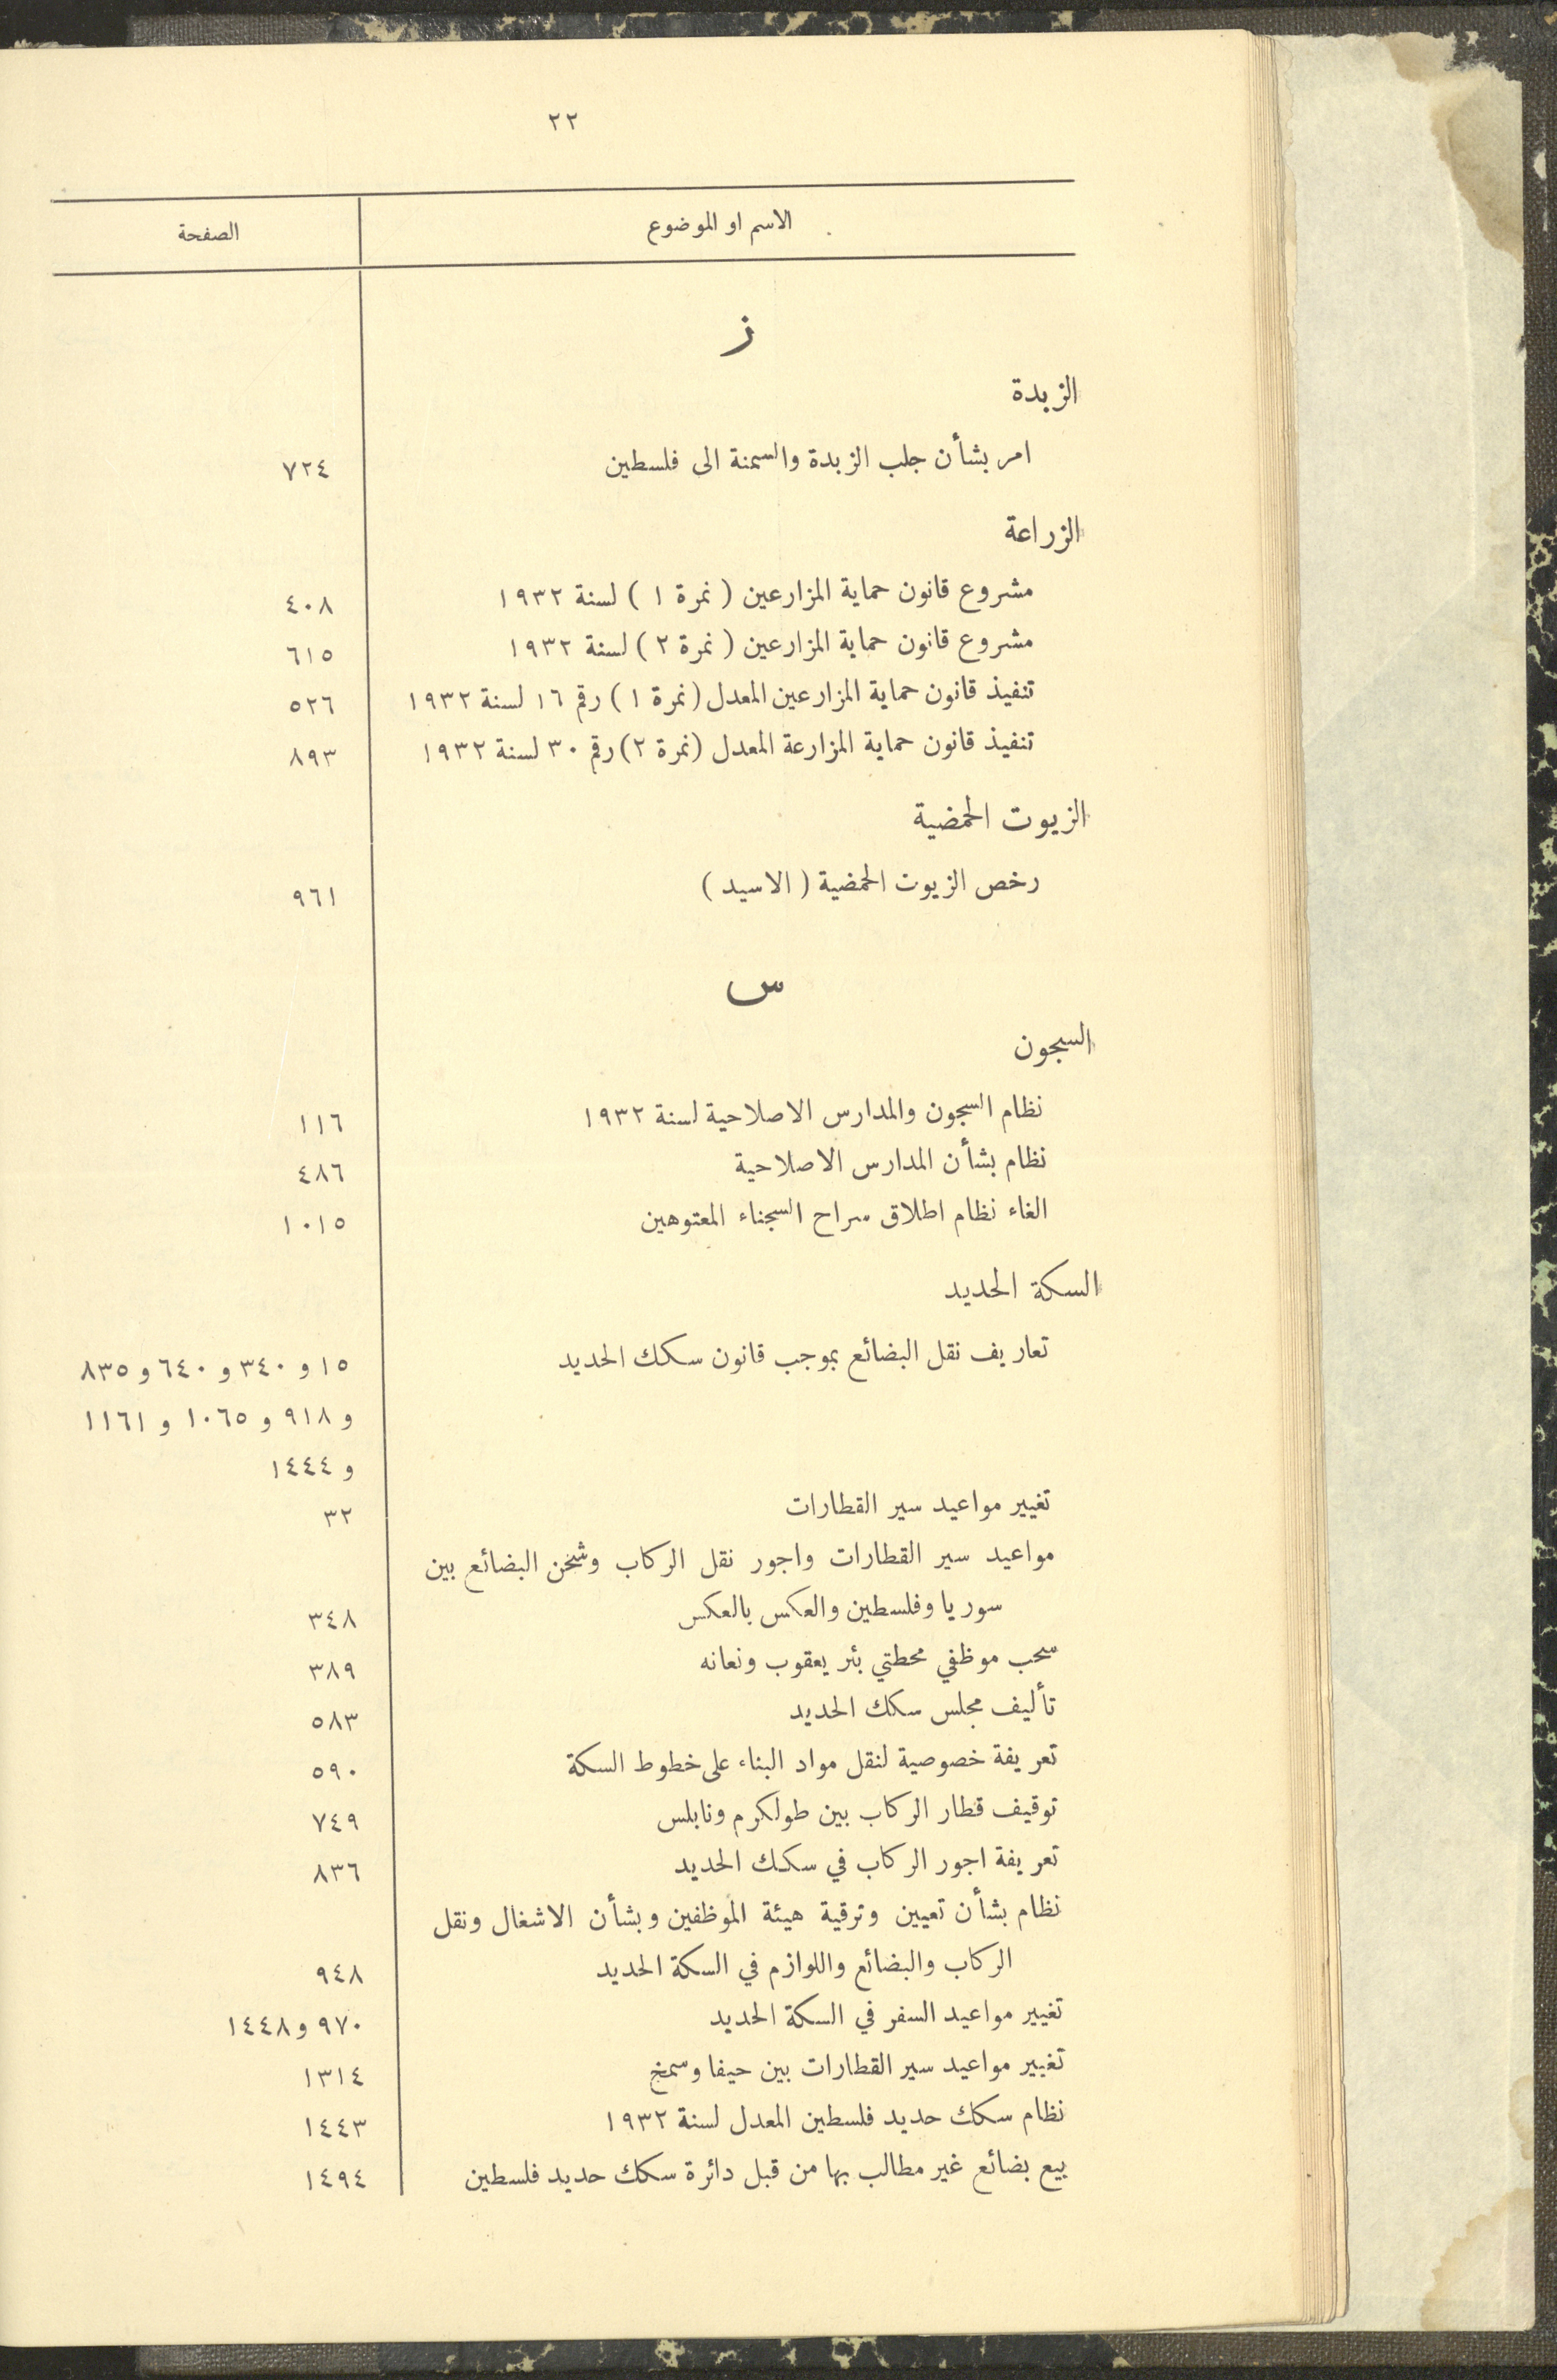 ٢٢
الاسم او الموضوع الصفحة
ز
الزبدة
امر بشأن جلب الزبدة والسمنة الى فلسطين ٧٢٤
الزراعة
مشروع قانون حماية المزارعين ( نمرة ١ ) لسنة ١٩٣٢ ٤٠٨
مشروع قانون حماية المزارعين ( نمرة ٢ ) لسنة ١٩٣٢ ٦١٥
تنفيذ قانون حماية المزارعين المعدل ( نمرة ١ ) رقم ١٦ لسنة ١٩٣٢ ٥٢٦
تنفيذ قانون حماية المزارعة المعدل (نمرة ٢) رقم ٣٠ لسنة ١٩٣٢ ٨٩٣
الزيوت الحمضية
رخص الزيوت الحمضية ( الاسيد ) ٩٦١
س
السجون
نظام السجون والمدارس الاصلاحية لسنة ١٩٣٢ ١١٦
نظام بشأن المدارس الاصلاحية ٤٨٦
الغاء نظام اطلاق سراح السجناء المعتوهين ١٠١٥
السكة الحديد
تعاريف نقل البضائع بموجب قانون سكك الحديد ١٥ و ٣٤٠ و ٦٤٠ و ٨٣٥
و ٩١٨ و ١٠٦٥ و ١١٦١
و ١٤٤٤
تغيير مواعيد سير القطارات ٣٢
مواعيد سير القطارات واجور نقل الركاب وشحن البضائع بين
سوريا وفلسطين والعكس بالعكس ٣٤٨
سحب موظفي محطتي بئر يعقوب ونعانه ٣٨٩
تأليف مجلس سكك الحديد ٥٨٣
تعريفة خصوصية لنقل مواد البناء على خطوط السكة ٥٩٠
توقيف قطار الركاب بين طولكرم ونابلس ٧٤٩
تعريفة اجور الركاب في سكك الحديد ٨٣٦
نظام بشأن تعيين وترقية هيئة الموظفين وبشأن الاشغال ونقل
الركاب والبضائع واللوازم في السكة الحديد ٩٤٨
تغيير مواعيد السفر في السكة الحديد ٩٧٠ و ١٤٤٨
تغيير مواعيد سير القطارات بين حيفا وسمخ ١٣١٤
نظام سكك حديد فلسطين المعدل لسنة ١٩٣٢ ١٤٤٣
بيع بضائع غير مطالب بها من قبل دائرة سكك حديد فلسطين ١٤٩٤